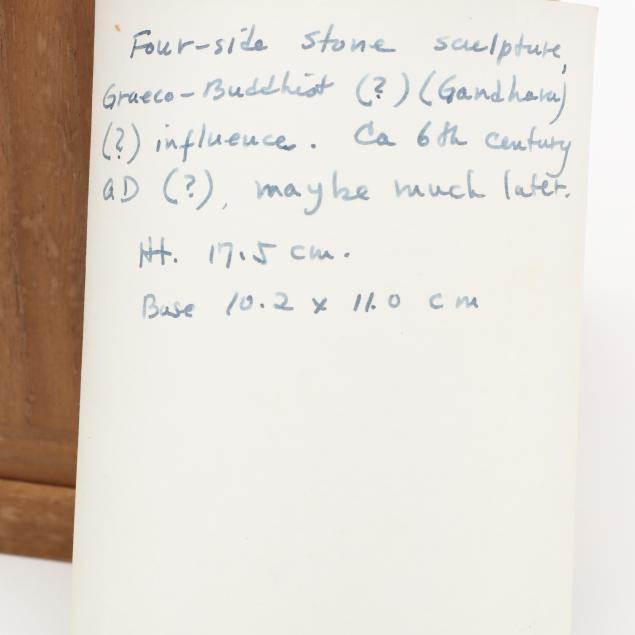 Four-side stone sculpture,
Graeco-Buddhist (?) (Gandhara)
(?) influence. Ca 6th century
AD (?), maybe much later.
Ht. 17.5 cm.
Base 10.2 x 11.0 cm